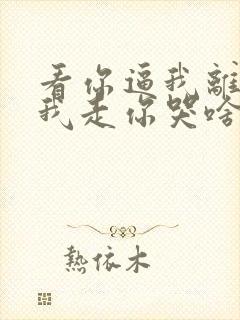 看你逼我離
我走你哭啥
熱依木